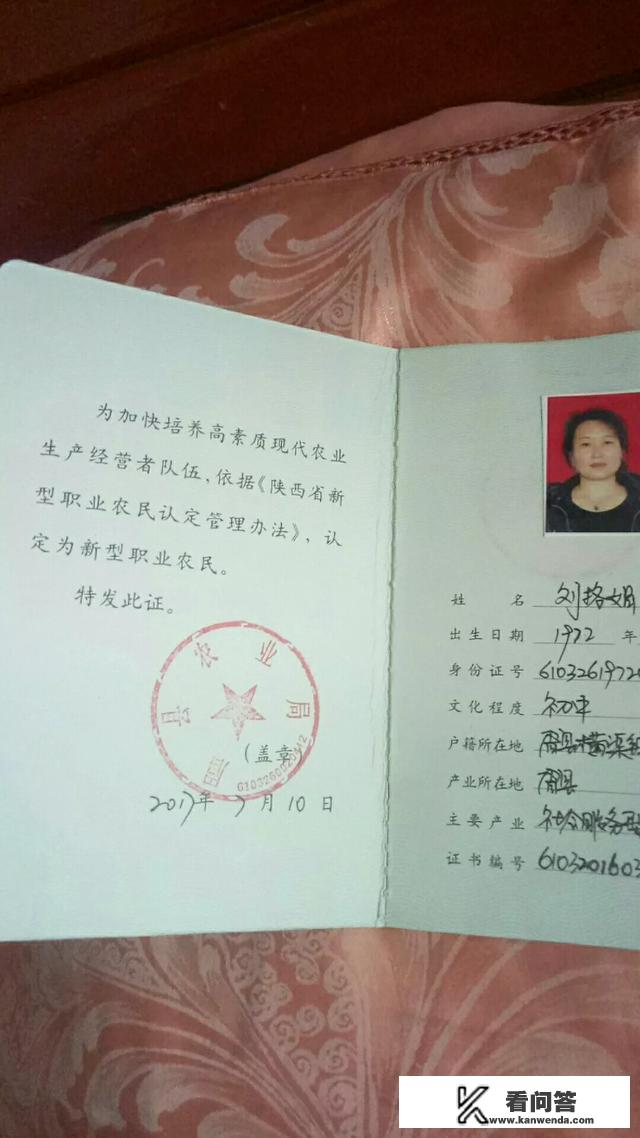 为加快培养高素质现代农业
生产经营者队伍,依据《陕西省新
型职业农民认定管理办法》,认
定为新型职业农民。
特发此证。
眉县农业局
(盖章)
2017年7月10日
姓名 刘
出生日期 1972 年
身份证号 61032619720
文化程度 初中
户籍所在地 眉县横渠
产业所在地 眉县
主要产业 社会服务型
证书编号 6103201603
看问答
www.kanwenda.com